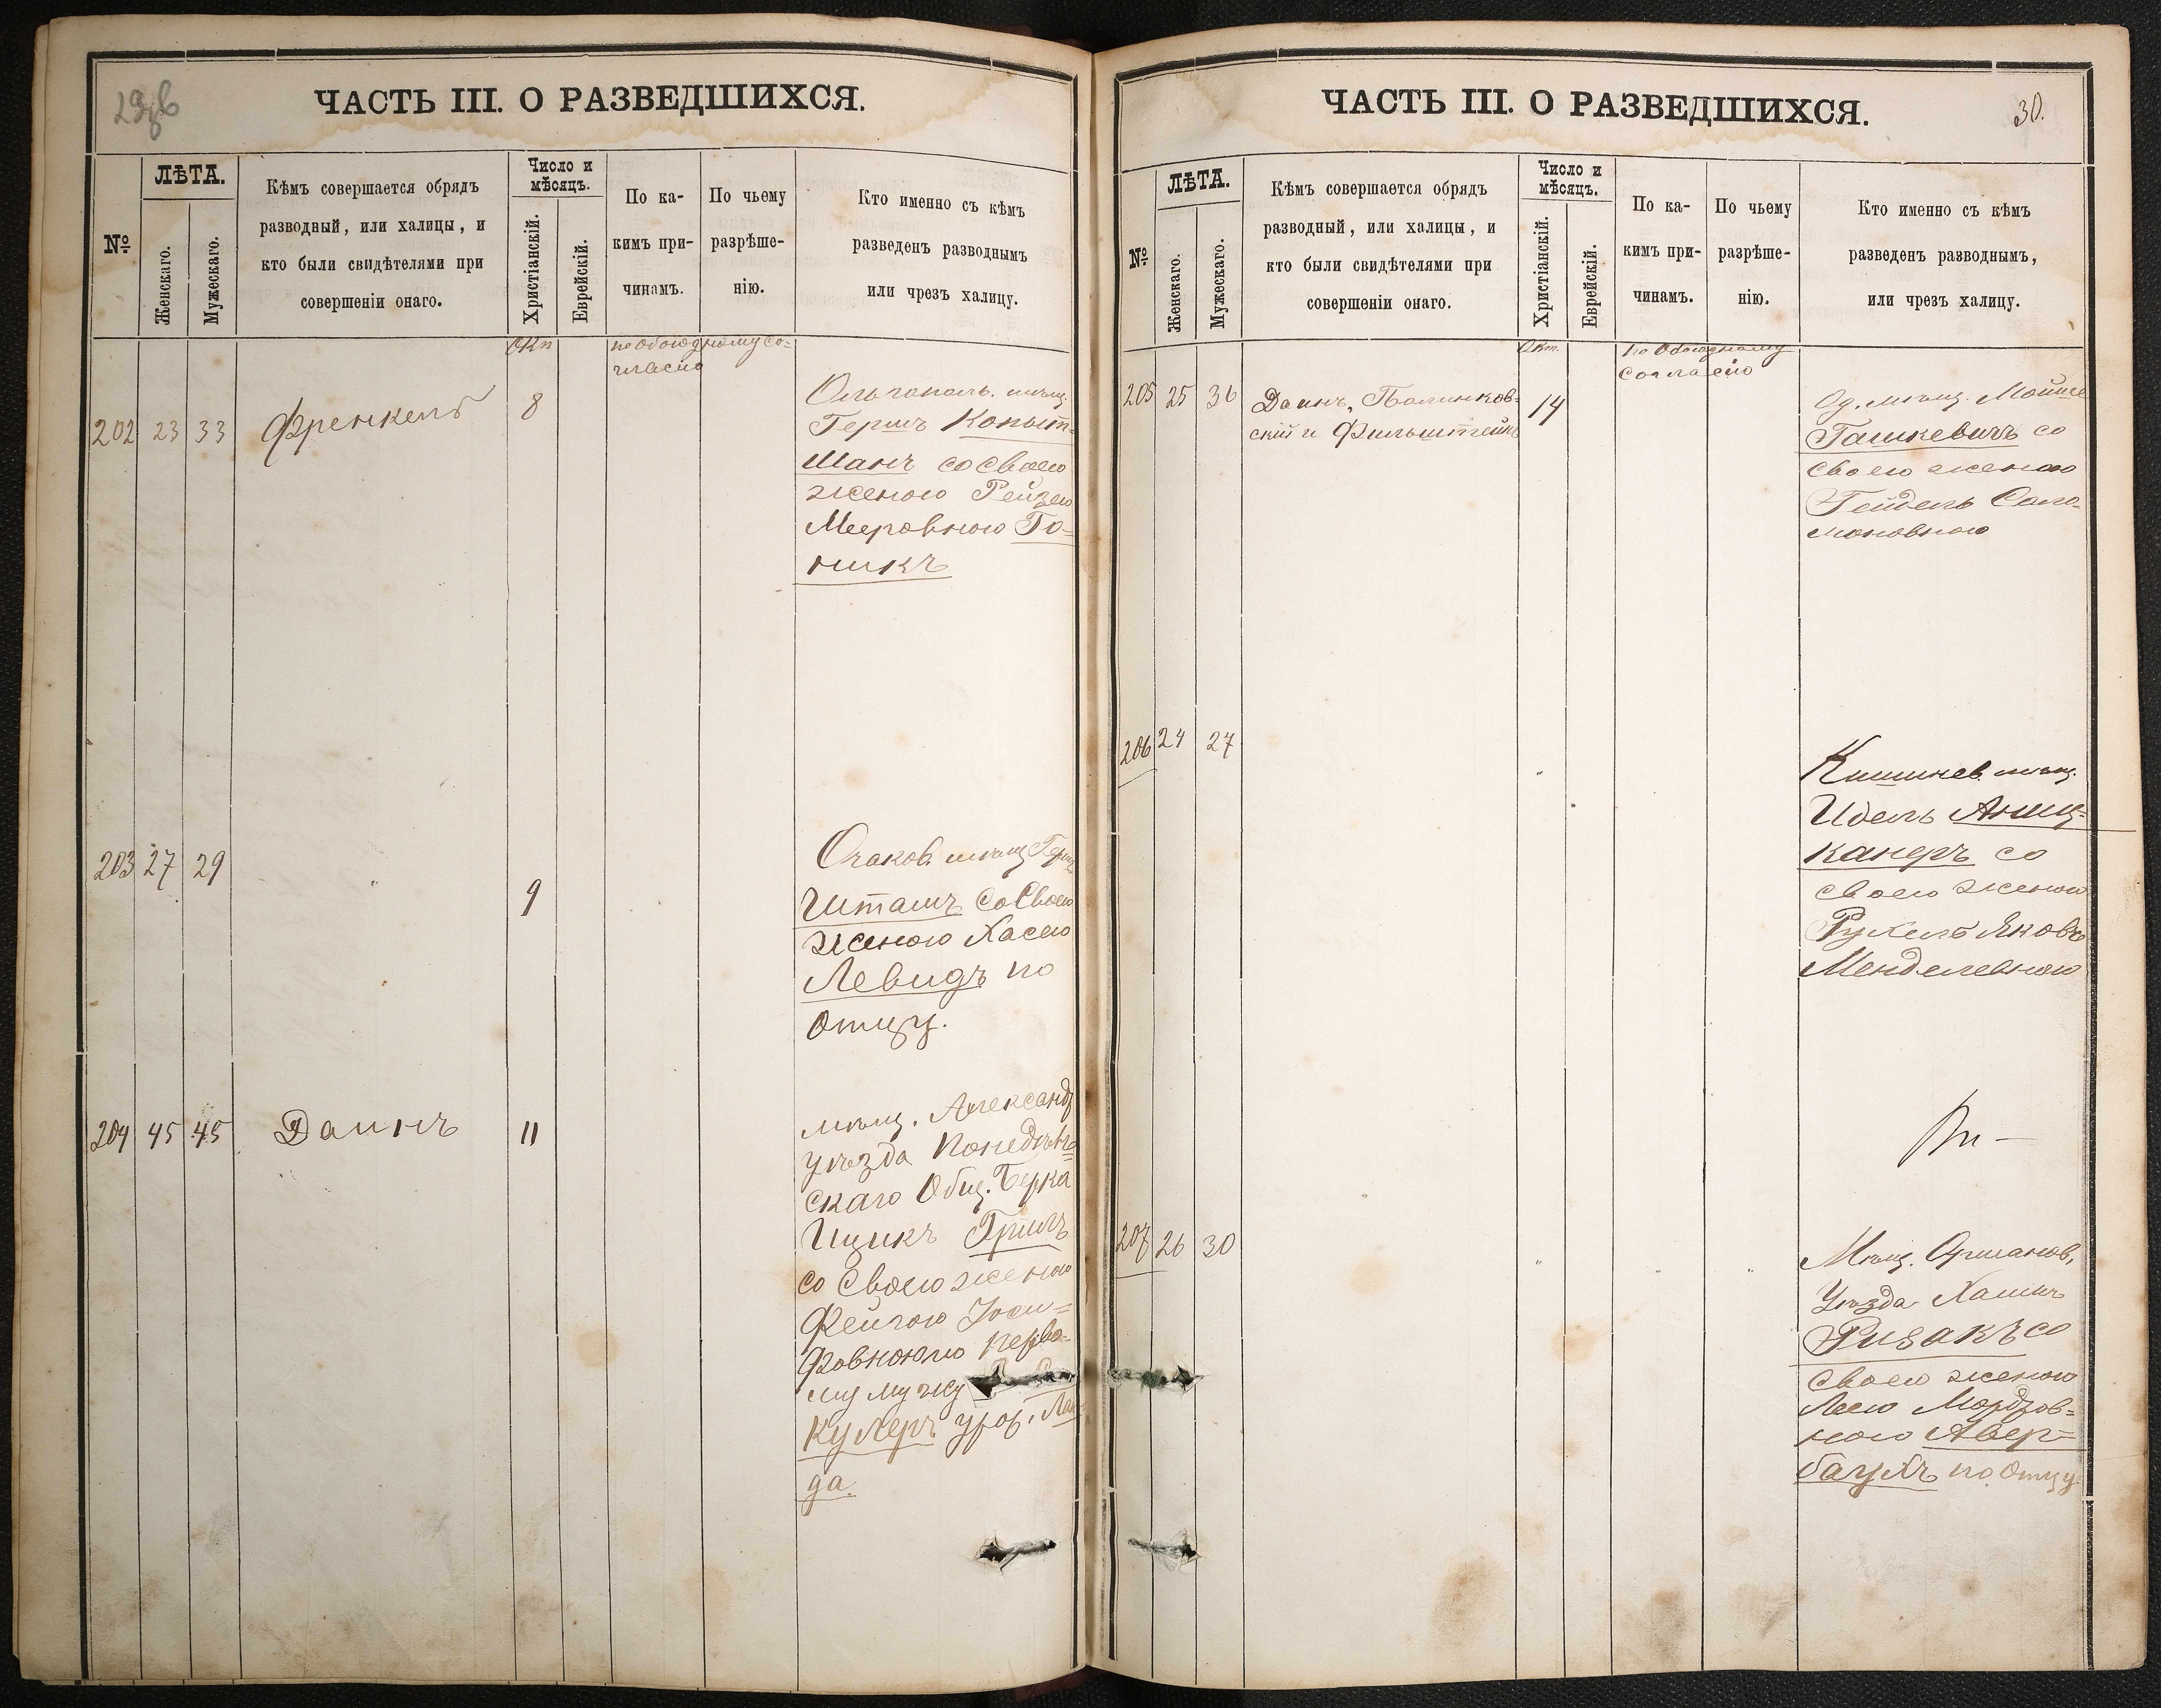 ЧАСТЬ III. О РАЗВЕДШИХСЯ.
№
ЛѢТА.
Женскаго.
Мужескаго.
Кѣмъ совершается обрядъ
разводный, или халицы, и
кто были свидѣтелями при
совершеніи онаго.
Число и
мѣсяцъ.
Христіанскій.
Еврейскій.
По ка-
кимъ при-
чинамъ.
По чьему
разрѣше-
нію.
Кто именно съ кѣмъ
разведенъ разводнымъ
или чрезъ халицу.
Окт
по обоюдному со-
гласію
202 23 33 Френкель 8
Ольгопол. мѣщ.
Гершъ Копыт-
манъ со своею
женою Рейзею
Мееровною Го-
никъ
203 27 29 " 9
Очаков. мѣщ Герш
Шташъ со своею
женою Хасею
Левидъ по
отцу.
204 45 45 Даинъ 11
мѣщ. Александ
уѣзда
скаго Общ. Берка
Ицикъ Гриль
со своею женою
Фейгою Іоси-
фовною по перво-
му мужу
кулеръ урож.
да.
ЧАСТЬ III. О РАЗВЕДШИХСЯ.
30.
№
ЛѢТА.
Женскаго.
Мужескаго.
Кѣмъ совершается обрядъ
разводный, или халицы, и
кто были свидѣтелями при
совершеніи онаго.
Число и
мѣсяцъ.
Христіанскій.
Еврейскій.
По ка-
кимъ при-
чинамъ.
По чьему
разрѣше-
нію.
Кто именно съ кѣмъ
разведенъ разводнымъ,
или чрезъ халицу.
Окт.
по обоюдному
согласію
205 25 36 Даинъ, Полинков-
скій и Фильштейнъ 14
Од. мѣщ. Мойше
Гашкевичъ со
своею женою
Гейдель Соло-
моновною
206 24 27 "
Кишинев. мѣщ.
Идель Аниц-
канеръ со
своею женою
Рухель Яковъ
Менделевною
207 26 30 " " "
Мѣщ. Ошманов,
Уѣзда Хаимъ
Ривакъ со
своею женою
Леею Мордхов-
ною Авер-
баухъ по отцу.